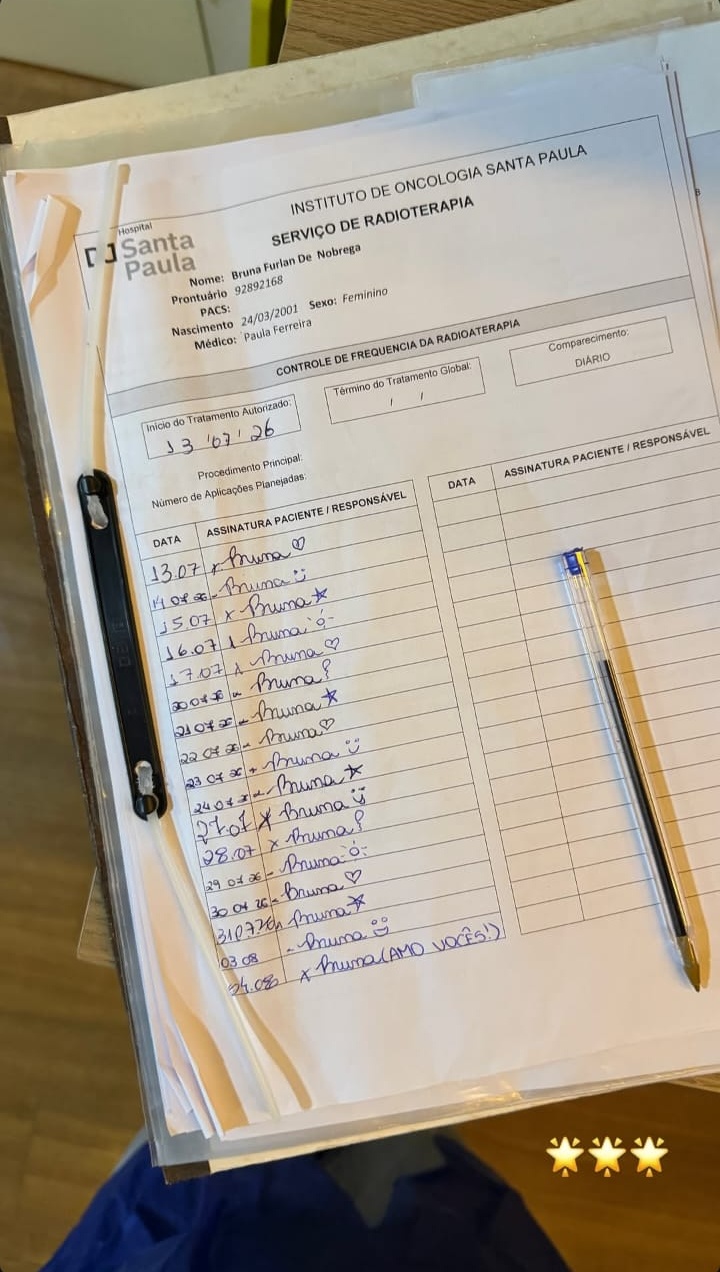 INSTITUTO DE ONCOLOGIA SANTA PAULA
SERVIÇO DE RADIOTERAPIA
Hospital
Santa
Paula
Nome: Bruna Furlan De Nobrega
Prontuário 92892168
PACS:
Nascimento 24/03/2001 Sexo: Feminino
Médico: Paula Ferreira
CONTROLE DE FREQUENCIA DA RADIOATERAPIA
Inicio do Tratamento Autorizado:
13/07/26
Término do Tratamento Global:
/ /
Comparecimento:
DIÁRIO
Procedimento Principal:
Número de Aplicações Planejadas:
DATA ASSINATURA PACIENTE / RESPONSÁVEL
13.07 x Bruna ♡
14 07 26 - Bruna
15.07 x Bruna ★
16.07 x Bruna
17.07 x Bruna ♡
20 07 26 - Bruna
21 07 26 - Bruna ★
22 07 26 - Bruna ♡
23 07 26 - Bruna
24 07 26 - Bruna ★
27.07 x Bruna
28.07 x Bruna
29 07 26 - Bruna
30 07 26 - Bruna ♡
31 07 26 Bruna ★
03 08 - Bruna
04.08 x Bruna (AMO VOCÊS!)
DATA ASSINATURA PACIENTE / RESPONSÁVEL